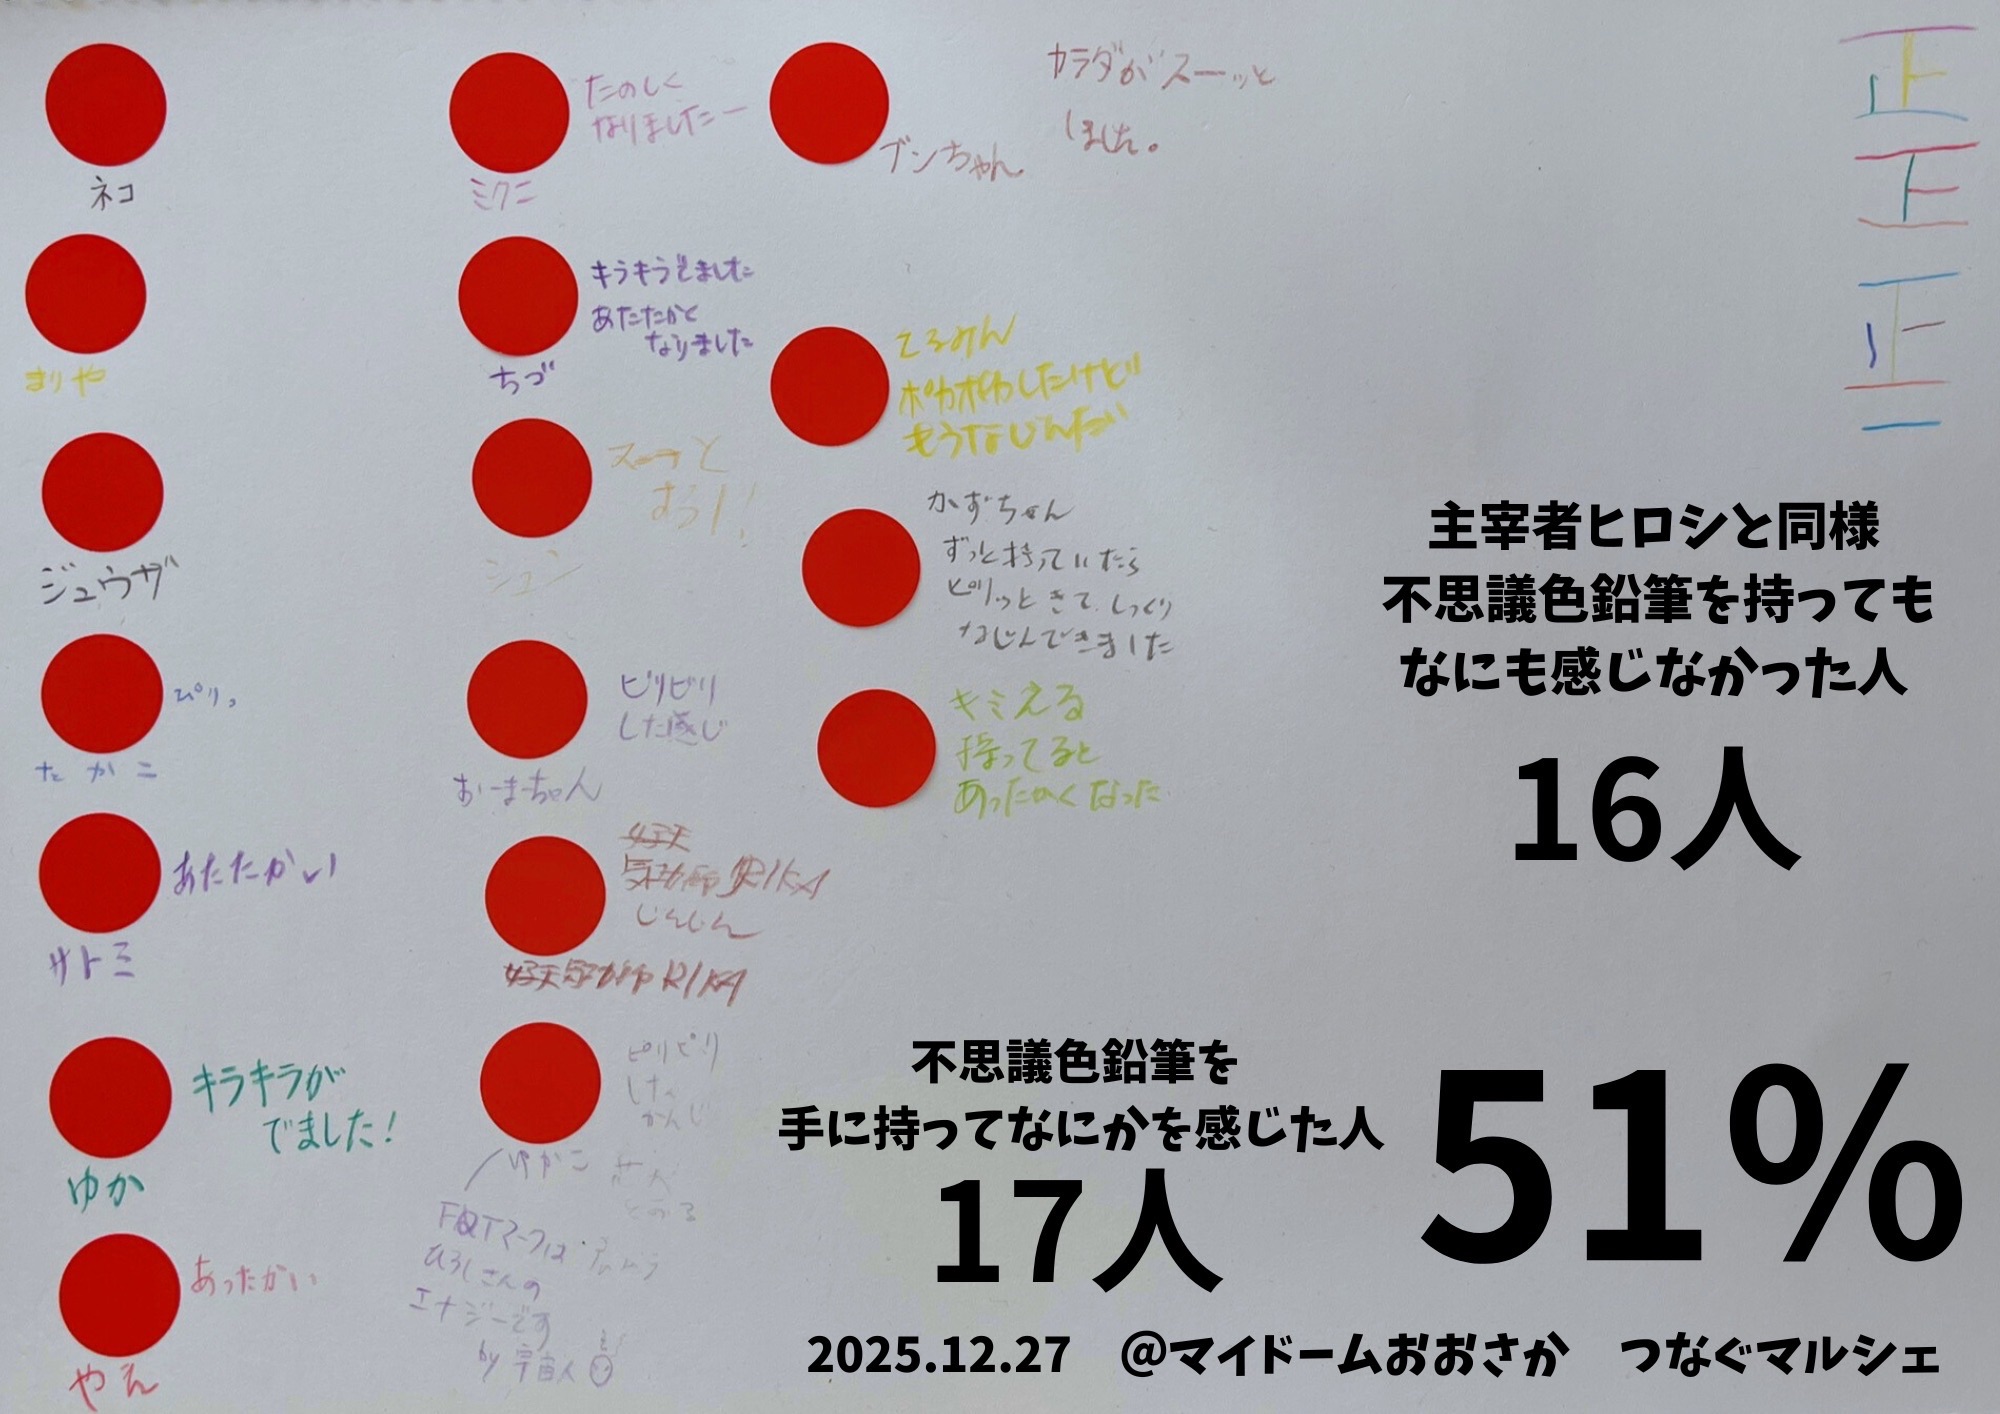 ネコ
まりや
ジュウザ
ぴりっ
たかこ
あたたかい
サトミ
キラキラが
でました!
ゆか
あったかい
やえ
たのしく
なりましたー
ミクニ
キラキラでました
あたたかく
なりました
ちづ
スーっと
シュン
ビリビリ
した感じ
おーまちゃん
じんじん
RIKA
ピリピリ
した
かんじ
ゆかこ
FQTマークは
ひろしさんの
エナジーです
by 宇宙人
カラダがスーーッと
しました。
ブンちゃん
てるみん
ポカポカしたけど
もうなじんだ
かずちゃん
ずっと持っていたら
ピリッときて、しっくり
なじんできました
キミえる
持ってると
あったかくなった
正
正
正
一
主宰者ヒロシと同様
不思議色鉛筆を持っても
なにも感じなかった人
16人
不思議色鉛筆を
手に持ってなにかを感じた人
17人
51%
2025.12.27 @マイドームおおさか つなぐマルシェ